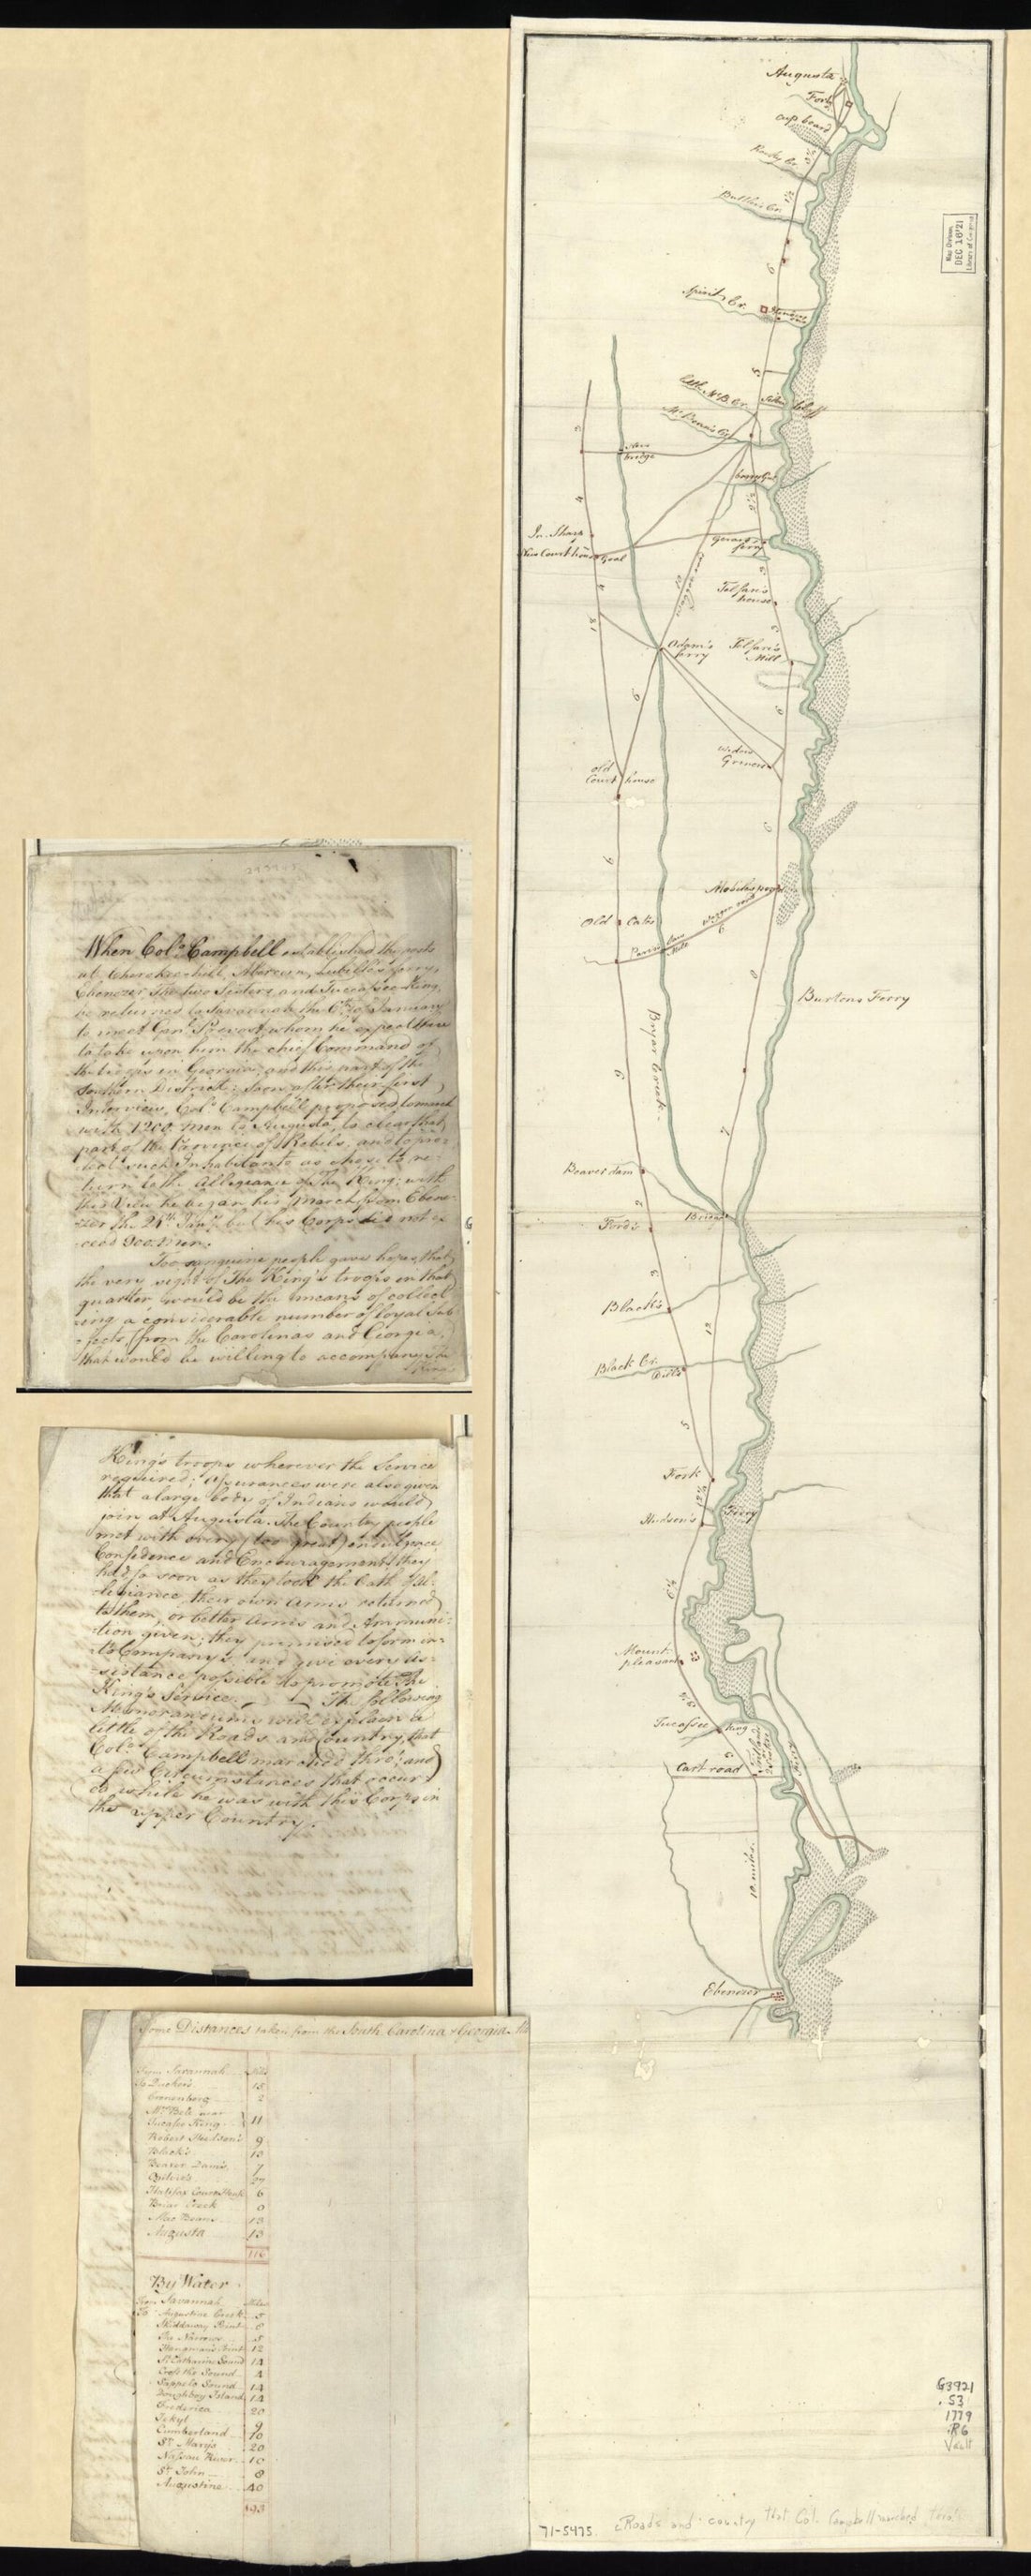 When Col.º Campbell established the posts
at Cherokee hill, Abercorn, Zubille's ferry,
Ebenezer The two Sisters and Tuccassee King,
he returned to Savannah the 6.th of January
to meet Gen.l Prevost whom he expected there
to take upon him the chief Command of
the troops in Georgia, and this part of the
Southern District: Soon after their first
Interview, Col.º Campbell proposed to march
with 1200 Men to Augusta, to clear that
part of the Province of Rebels, and to pro-
tect such Inhabitants as chose to re-
turn to the Allegiance of The King: with
this View he began his March from Ebene-
zer the 24.th Jan.y but his Corps did not ex
ceed 900 Men.
Too sanguine people gave hopes, that
the very sight of The King's troops in that
quarter would be the means of collect
-ing a considerable number of loyal Sub-
-jects, (from the Carolinas and Georgia,)
that would be willing to accompany The
King's
King's troops wherever the Service
required; assurances were also given
that a large body of Indians would
join at Augusta. The Country people
met with every (too great) indulgence
Confidence and Encouragement; they
had so soon as they took the Oath of al-
legiance, their own arms returned
to them, or better arms and Ammuni-
-tion given; they promised to form in-
-to Companys, and give every as-
-sistance possible to promote The
King's Service. The following
Memorandums will explain a
little of the Roads and Country, that
Col.º Campbell marched thro', and
a few Circumstances that occur
ed while he was with this Corps in
the upper Country.
Some Distances taken from the South Carolina & Georgia
From Savannah Miles
To Zuckers 13
Cronenberg 2
Mrs Bele near
Tucasse King 11
Robert Hudson's 9
Black's 13
Beaver Dam's 7
Ogilvie's 27
Halifax Court House 6
Briar Creek 0
Mac Beans 13
Augusta 13
116
By Water
From Savannah Miles
To Augustine Creek 5
Skiddaway Point 6
The Narrows 5
Hangman's Point 12
St Catharine Sound 14
Cross the Sound 4
Sappelo Sound 14
Doughboy Island 14
Frederica 20
Jekyl 9
Cumberland 10
St Marys 20
Nassau River 10
St John 8
Augustine 40
193
Augusta
Fort
Cup board
Rocky Cr.
Butler's Cr.
Spirit Cr.
6
5
Little McB. Cr.
McBean's Cr.
New
bridge
3
4
Jn. Sharp
New Court house
Goal
ferry
4
18
10
Telfair's
house
3
Adam's
ferry
Telfair's
Mill
9
6
Widow
Greiner
old
Court house
9
9
Mobiles pond
Waggon road
6
Old Cates
Mill
Burtons Ferry
Bryar Creek
9
9
7
Beaver dam
2
Ford's
Bridge
3
Black's
12
Black Cr.
Dills
5
Fork
12½
Hudson's
Ferry
Mount
pleasant
Tucassee King
Cart road
10 miles
Ebenezer
Map Division
DEC 16 '21
Library of Congress
G3921
.S3
1779
.R6
Vault
71-5475
Roads and country that Col. Campbell marched thro'